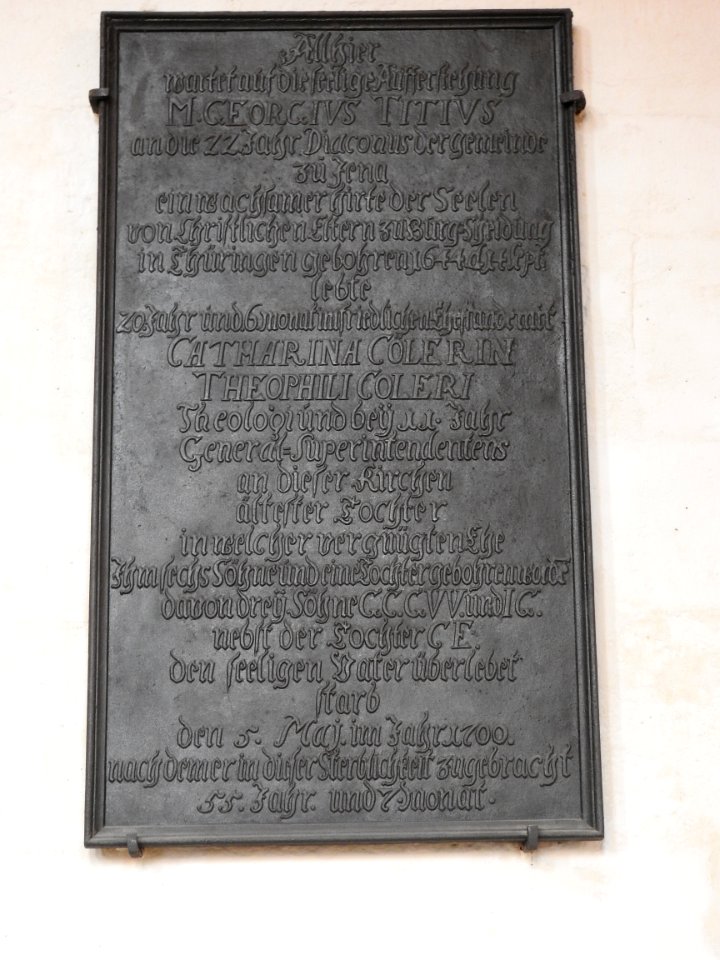 Allhier
wartet auf die seelige Aufferstehung
M. GEORGIVS TITIVS
an die 22 Jahr Diaconus der gemeinde
zu Jena
ein wachsamer hirte der Seelen
von Christlichen Eltern zu Burg-Scheidung
in Thüringen gebohren 1644 d. 14. Sept.
lebte
20 Jahr und 6 monat im friedlichen Ehestande mit
CATHARINA CÖLERIN
THEOPHILI COLERI
Theologi und beÿ 11. Jahr
General-Superintendentens
an dieser Kirchen
ältester Tochter
in welcher vergnügten Ehe
Ihm sechs Söhne und eine Tochter gebohren
davon dreÿ Söhne C. C. C. VV. und I C.
nebst der Tochter C E.
den seeligen Vater überlebet
starb
den 5. Maj. im Jahr 1700.
nach dem er in dieser Sterblichkeit zugebracht
55. Jahr. und 7 monat.